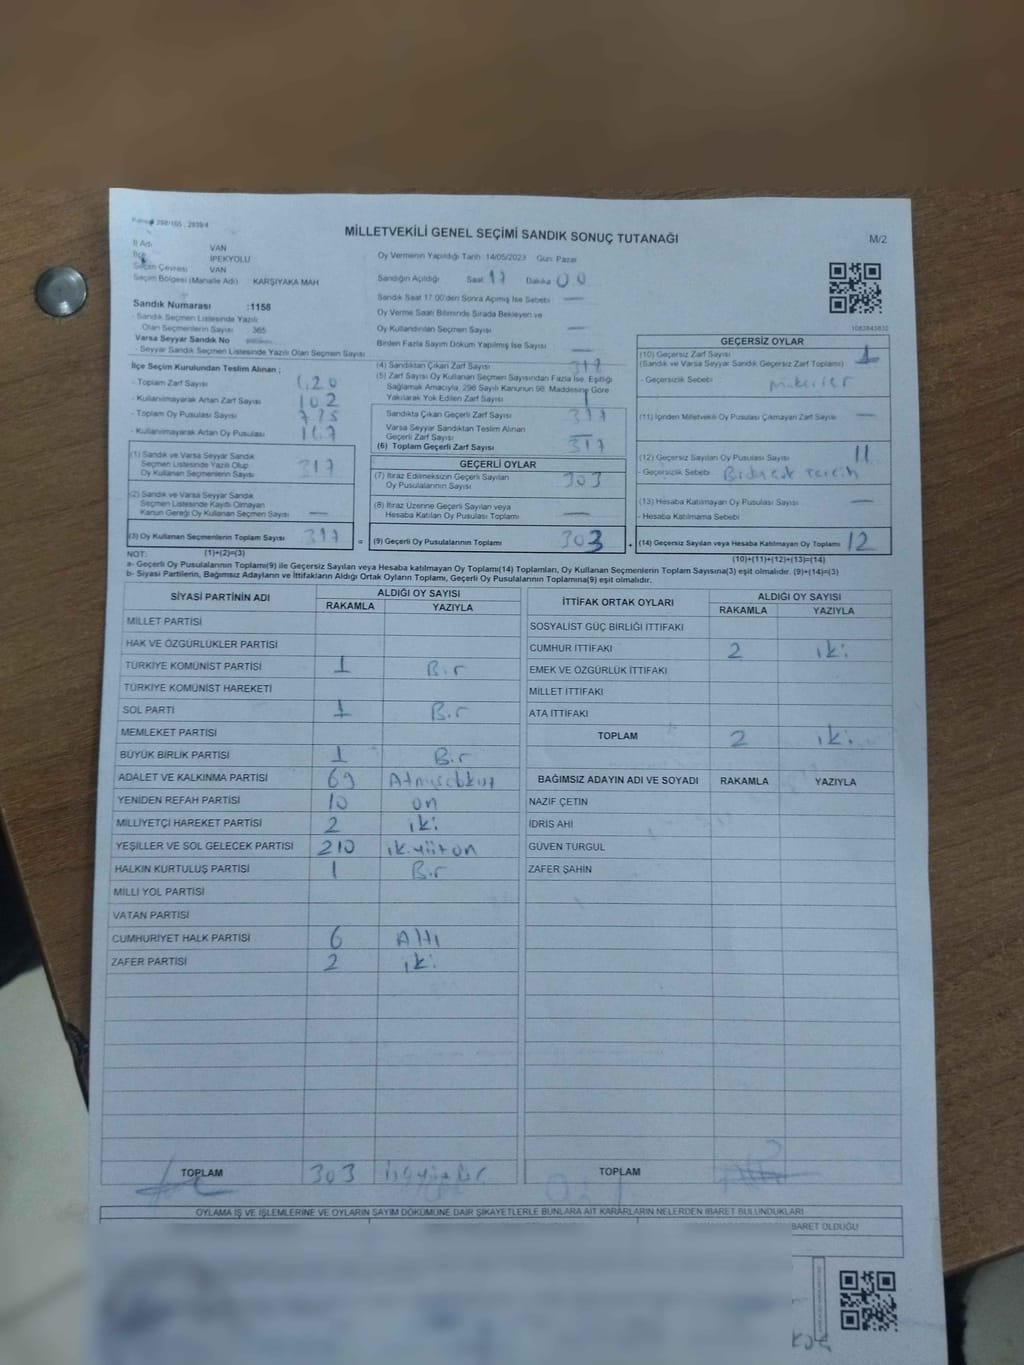 Kanun 298/105 , 2839/4
MİLLETVEKİLİ GENEL SEÇİMİ SANDIK SONUÇ TUTANAĞI
M/2
İl Adı VAN
İlçe İPEKYOLU
Seçim Çevresi VAN
Seçim Bölgesi (Mahalle Adı) KARŞIYAKA MAH
Sandık Numarası :1158
- Sandık Seçmen Listesinde Yazılı
Olan Seçmenlerin Sayısı 365
Varsa Seyyar Sandık No
- Seyyar Sandık Seçmen Listesinde Yazılı Olan Seçmen Sayısı
Oy Vermenin Yapıldığı Tarih 14/05/2023 Gün: Pazar
Sandığın Açıldığı Saat 17 Dakika 00
Sandık Saat 17.00'den Sonra Açımış İse Sebebi —
Oy Verme Saati Bitiminde Sırada Bekleyen ve
Oy Kullandırılan Seçmen Sayısı —
Birden Fazla Sayım Döküm Yapılmış İse Sayısı —
1083843832
İlçe Seçim Kurulundan Teslim Alınan ;
- Toplam Zarf Sayısı
- Kullanılmayarak Artan Zarf Sayısı 102
- Toplam Oy Pusulası Sayısı
- Kullanılmayarak Artan Oy Pusulası
(1) Sandık ve Varsa Seyyar Sandık
Seçmen Listesinde Yazılı Olup
Oy Kullanan Seçmenlerin Sayısı 317
(2) Sandık ve Varsa Seyyar Sandık
Seçmen Listesinde Kayıtlı Olmayan
Kanun Gereği Oy Kullanan Seçmen Sayısı —
(3) Oy Kullanan Seçmenlerin Toplam Sayısı 317
(1)+(2)=(3)
(4) Sandıktan Çıkan Zarf Sayısı 317
(5) Zarf Sayısı Oy Kullanan Seçmen Sayısından Fazla İse, Eşitliği
Sağlamak Amacıyla, 298 Sayılı Kanunun 98. Maddesine Göre
Yakılarak Yok Edilen Zarf Sayısı
Sandıkta Çıkan Geçerli Zarf Sayısı 317
Varsa Seyyar Sandıktan Teslim Alınan
Geçerli Zarf Sayısı —
(6) Toplam Geçerli Zarf Sayısı 317
GEÇERLİ OYLAR
(7) İtiraz Edilmeksizin Geçerli Sayılan
Oy Pusulalarının Sayısı 303
(8) İtiraz Üzerine Geçerli Sayılan veya
Hesaba Katılan Oy Pusulası Toplamı —
= (9) Geçerli Oy Pusulalarının Toplamı 303
GEÇERSİZ OYLAR
(10) Geçersiz Zarf Sayısı 1
(Sandık ve Varsa Seyyar Sandık Geçersiz Zarf Toplamı)
- Geçersizlik Sebebi
(11) İçinden Milletvekili Oy Pusulası Çıkmayan Zarf Sayısı —
(12) Geçersiz Sayılan Oy Pusulası Sayısı 11
- Geçersizlik Sebebi
(13) Hesaba Katılmayan Oy Pusulası Sayısı —
- Hesaba Katılmama Sebebi
+ (14) Geçersiz Sayılan veya Hesaba Katılmayan Oy Toplamı 12
(10)+(11)+(12)+(13)=(14)
NOT:
a- Geçerli Oy Pusulalarının Toplamı(9) ile Geçersiz Sayılan veya Hesaba katılmayan Oy Toplamı(14) Toplamları, Oy Kullanan Seçmenlerin Toplam Sayısına(3) eşit olmalıdır. (9)+(14)=(3)
b- Siyasi Partilerin, Bağımsız Adayların ve İttifakların Aldığı Ortak Oyların Toplamı, Geçerli Oy Pusulalarının Toplamına(9) eşit olmalıdır.
SİYASİ PARTİNİN ADI ALDIĞI OY SAYISI
RAKAMLA YAZIYLA
MİLLET PARTİSİ
HAK VE ÖZGÜRLÜKLER PARTİSİ
TÜRKİYE KOMÜNİST PARTİSİ 1 Bir
TÜRKİYE KOMÜNİST HAREKETİ
SOL PARTİ 1 Bir
MEMLEKET PARTİSİ
BÜYÜK BİRLİK PARTİSİ 1 Bir
ADALET VE KALKINMA PARTİSİ 69
YENİDEN REFAH PARTİSİ 10 on
MİLLİYETÇİ HAREKET PARTİSİ 2 iki
YEŞİLLER VE SOL GELECEK PARTİSİ 210 ikiyüzon
HALKIN KURTULUŞ PARTİSİ 1 Bir
MİLLİ YOL PARTİSİ
VATAN PARTİSİ
CUMHURİYET HALK PARTİSİ 6 Altı
ZAFER PARTİSİ 2 iki
TOPLAM 303
İTTİFAK ORTAK OYLARI ALDIĞI OY SAYISI
RAKAMLA YAZIYLA
SOSYALİST GÜÇ BİRLİĞİ İTTİFAKI
CUMHUR İTTİFAKI 2 iki
EMEK VE ÖZGÜRLÜK İTTİFAKI
MİLLET İTTİFAKI
ATA İTTİFAKI
TOPLAM 2 iki
BAĞIMSIZ ADAYIN ADI VE SOYADI RAKAMLA YAZIYLA
NAZİF ÇETİN
İDRİS AHİ
GÜVEN TURGUL
ZAFER ŞAHİN
TOPLAM
OYLAMA İŞ VE İŞLEMLERİNE VE OYLARIN SAYIM DÖKÜMÜNE DAİR ŞİKAYETLERLE BUNLARA AİT KARARLARIN NELERDEN İBARET BULUNDUKLARI
İBARET OLDUĞU